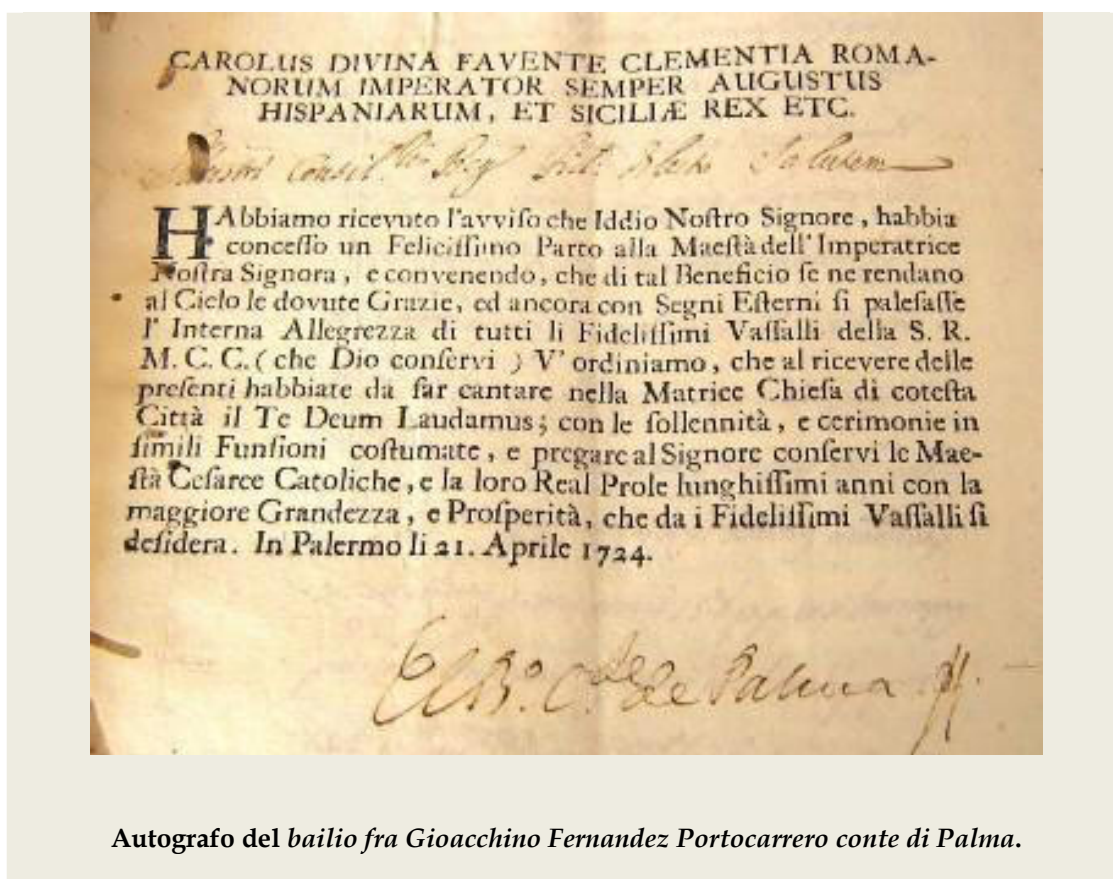 CAROLUS DIVINA FAVENTE CLEMENTIA ROMA-
NORUM IMPERATOR SEMPER AUGUSTUS
HISPANIARUM, ET SICILIÆ REX ETC.
Salutem
HAbbiamo ricevuto l'avviſo che Iddio Noſtro Signore, habbia
conceſſo un Feliciſſimo Parto alla Maeſtà dell'Imperatrice
Noſtra Signora, e convenendo, che di tal Beneficio ſe ne rendano
al Cielo le dovute Grazie, ed ancora con Segni Eſterni ſi paleſaſſe
l' Interna Allegrezza di tutti li Fideliſſimi Vaſſalli della S. R.
M. C. C. ( che Dio conſervi ) V' ordiniamo, che al ricevere delle
preſenti habbiate da far cantare nella Matrice Chieſa di coteſta
Città il Te Deum Laudamus; con le ſollennità, e cerimonie in
ſimili Funſioni coſtumate, e pregare al Signore conſervi le Mae-
ſtà Ceſaree Catoliche, e la loro Real Prole lunghiſſimi anni con la
maggiore Grandezza, e Proſperità, che da i Fideliſſimi Vaſſalli ſi
deſidera. In Palermo li 21. Aprile 1724.
El B.º C.de de Palma
Autografo del bailio fra Gioacchino Fernandez Portocarrero conte di Palma.